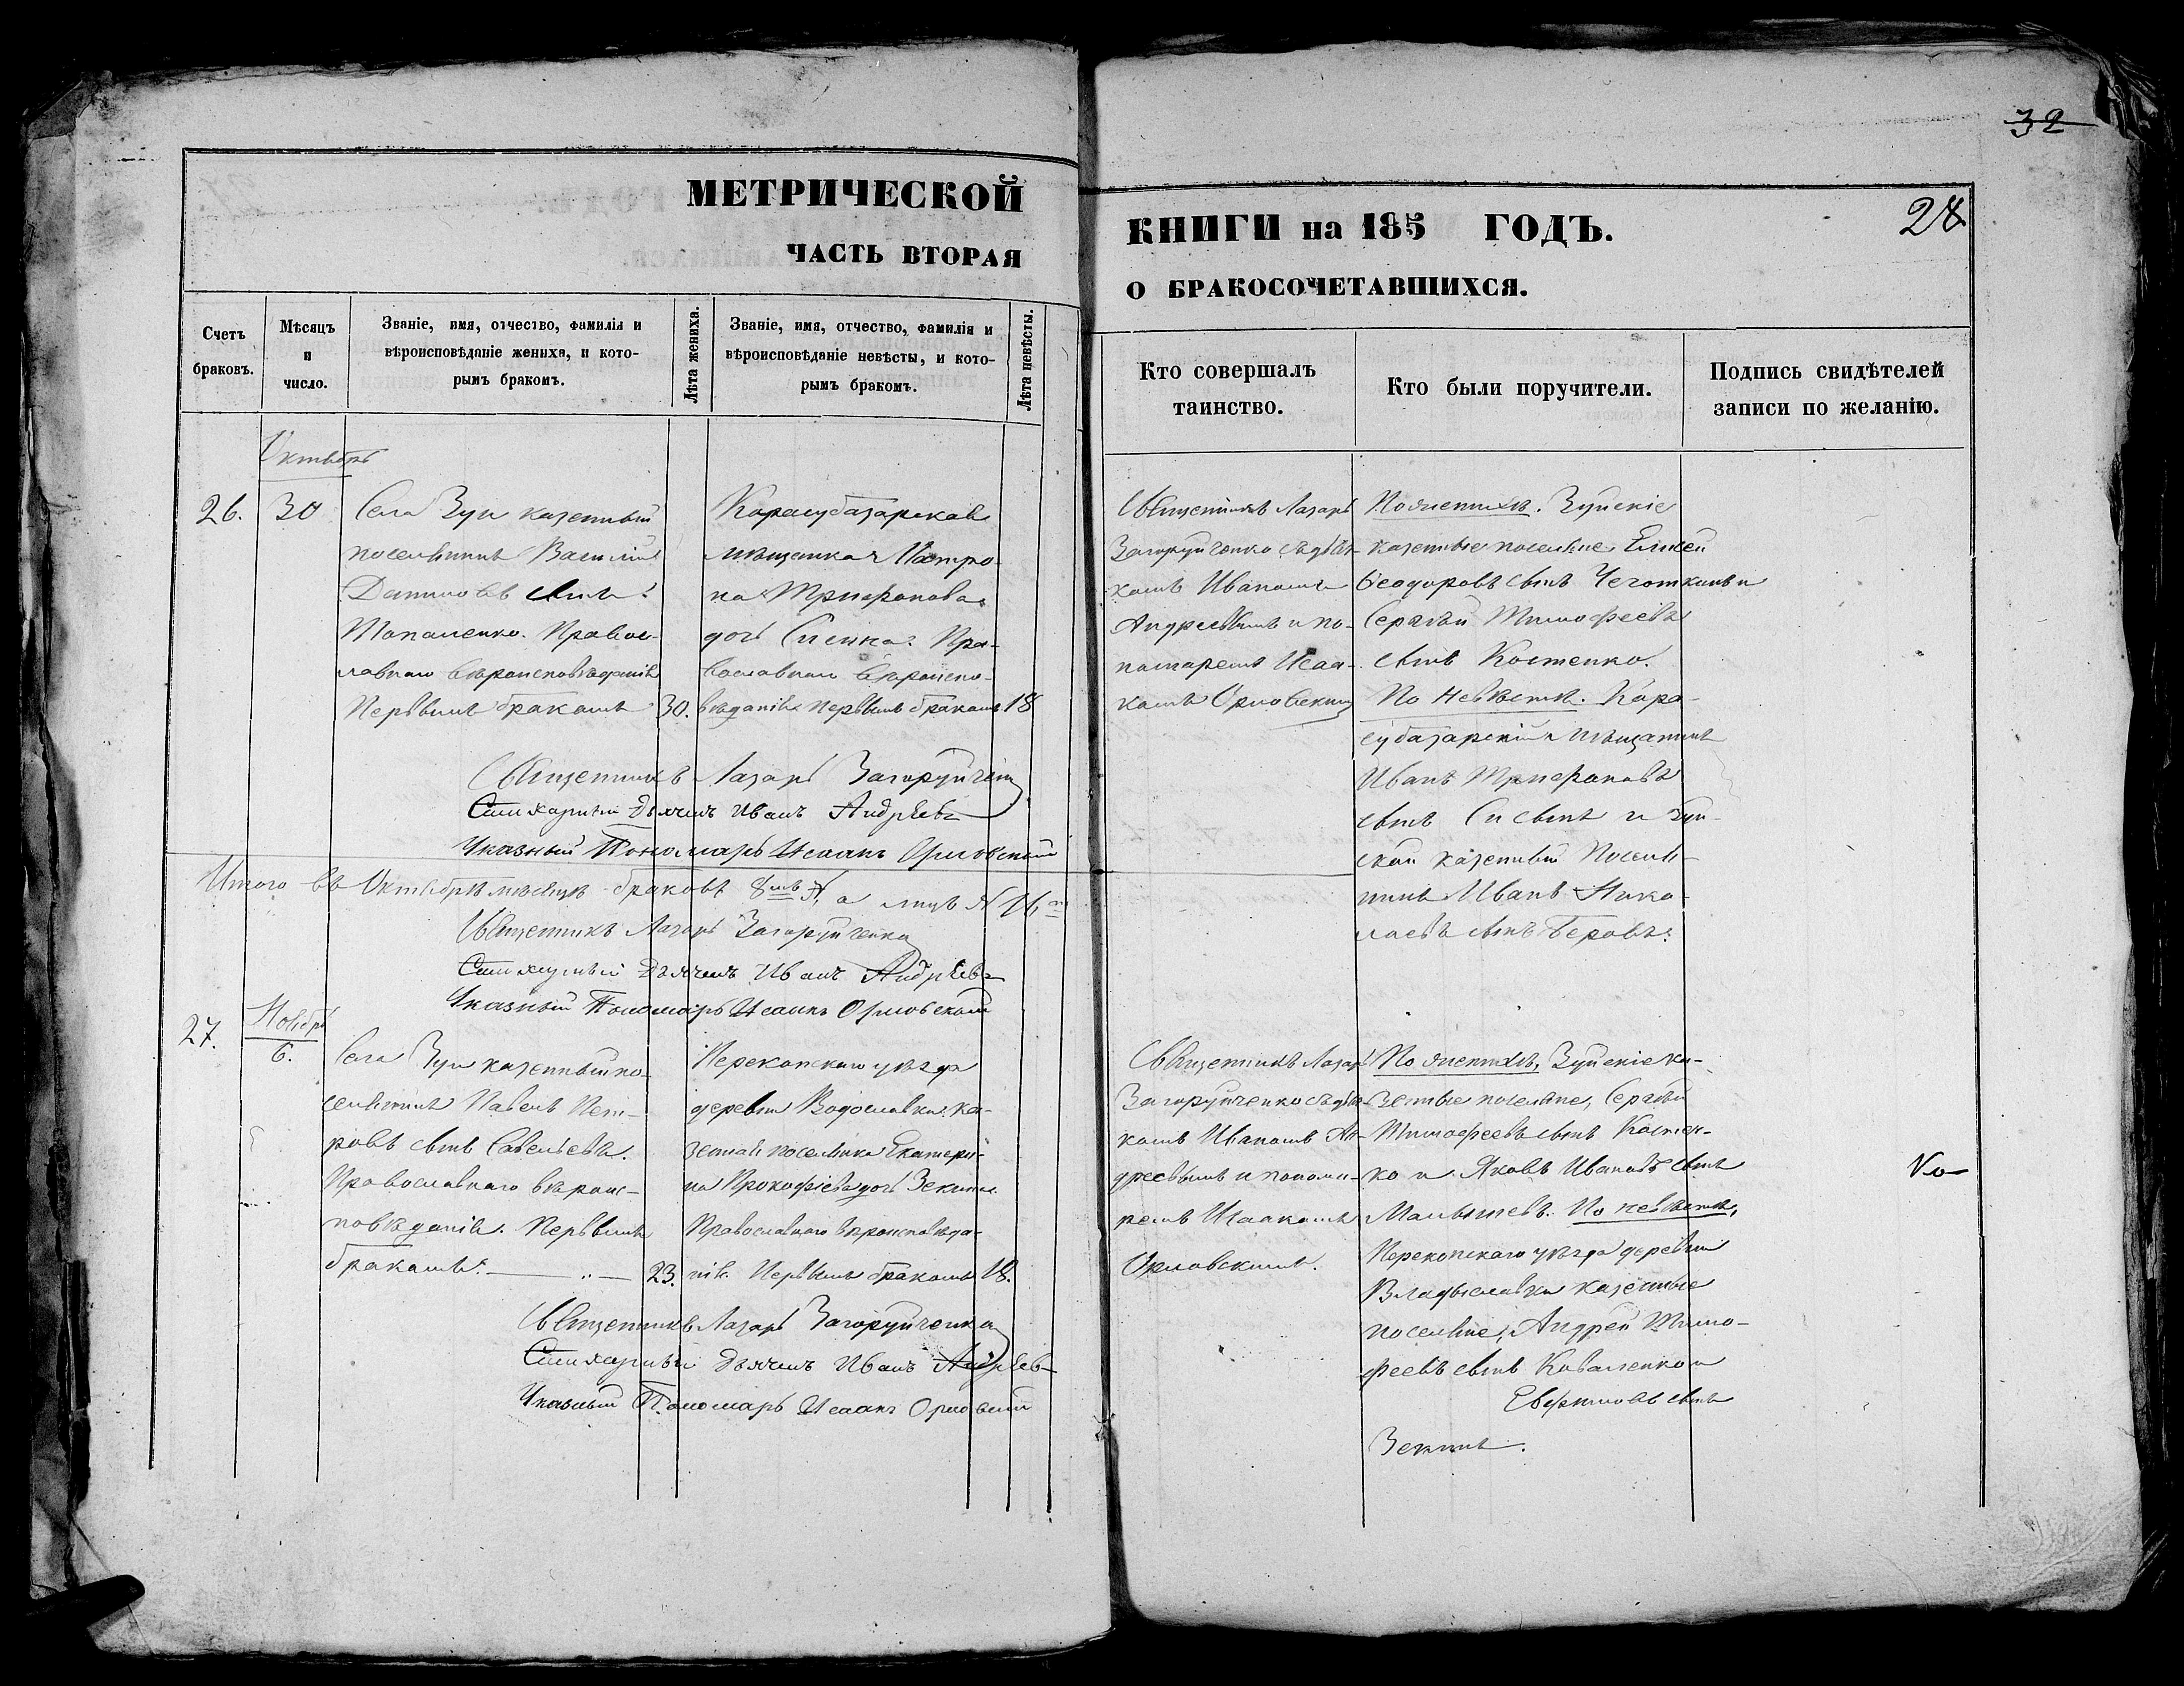 32
МЕТРИЧЕСКОЙ
ЧАСТЬ ВТОРАЯ
КНИГИ на 185 ГОДЪ.
28
О БРАКОСОЧЕТАВШИХСЯ.
Счетъ
браковъ.
Мѣсяцъ
и
число.
Званіе, имя, отчество, фамилія и
вѣроисповѣданіе жениха, и кото-
рымъ бракомъ.
Лѣта жениха.
Званіе, имя, отчество, фамилія и
вѣроисповѣданіе невѣсты, и кото-
рымъ бракомъ.
Лѣта невѣсты.
Кто совершалъ
таинство.
Кто были поручители.
Подпись свидѣтелей
записи по желанію.
Октябрь
26.
30
Села Зуи казенный
поселянинъ Василій
Даниловъ сынъ
Православ-
лавнаго вѣроисповѣданія
Первымъ бракомъ
30.
Карасубазарская
мѣщанка Матро-
на Трифонова
дочь Пра-
вославнаго вѣроиспо-
вѣданія первымъ бракомъ
18
Священникъ Лазарь
Загоруйченко съ дьяч-
комъ Иваномъ
Андреевымъ и по-
намаремъ Исаа-
комъ Орловскимъ
По женихѣ. Зуйскіе
казенные поселяне, Елисей
Феодоровъ сынъ Чеготкинъ и
Сергѣй Тимофеевъ
сынъ Костенко.
По невѣстѣ. Кара-
субазарскій мѣщанинъ
Иванъ Трифоновъ
сынъ и Зуй-
ской казенный поселя-
нинъ Иванъ Нико-
лаевъ сынъ Беровъ.
Священникъ Лазарь Загоруйченко
Стихарный Дьячекъ Иванъ Андреевъ
Указный Пономарь Исаакъ Орловский
Итого въ Октябрѣ мѣсяцѣ браковъ 8мь, а лицъ 16.
Священникъ Лазарь Загоруйченко
Стихарный Дьячекъ Иванъ Андреевъ
Указный Пономарь Исаакъ Орловский
27.
Ноябрь
6.
Села Зуи казенный по-
селянинъ Павелъ Пет-
ровъ сынъ Савельевъ.
Православнаго вѣроис-
повѣданія. Первымъ
бракомъ.
23.
Перекопскаго уѣзда
деревни Водославки ка-
зенная поселянка Екатери-
на Прокофіева дочь Зекина
Православнаго вѣроисповѣда-
нія. Первымъ бракомъ
18.
Священникъ Лазарь
Загоруйченко съ дьяч-
комъ Иваномъ Ан-
дреевымъ и понома-
ремъ Исаакомъ
Орловскимъ.
По женихѣ, Зуйскіе ка-
зенные поселяне, Сергѣй
Тимофеевъ сынъ Костен-
ко и Яковъ Ивановъ сынъ
Малышевъ. По невѣстѣ,
Перекопскаго уѣзда деревни
Владыславки казенные
поселяне, Андрей Тимо-
феевъ сынъ Коваленко и
сынъ
Зекинъ.
Священникъ Лазарь Загоруйченко
Стихарный Дьячекъ Иванъ Андреевъ
Указный Пономарь Исаакъ Орловский